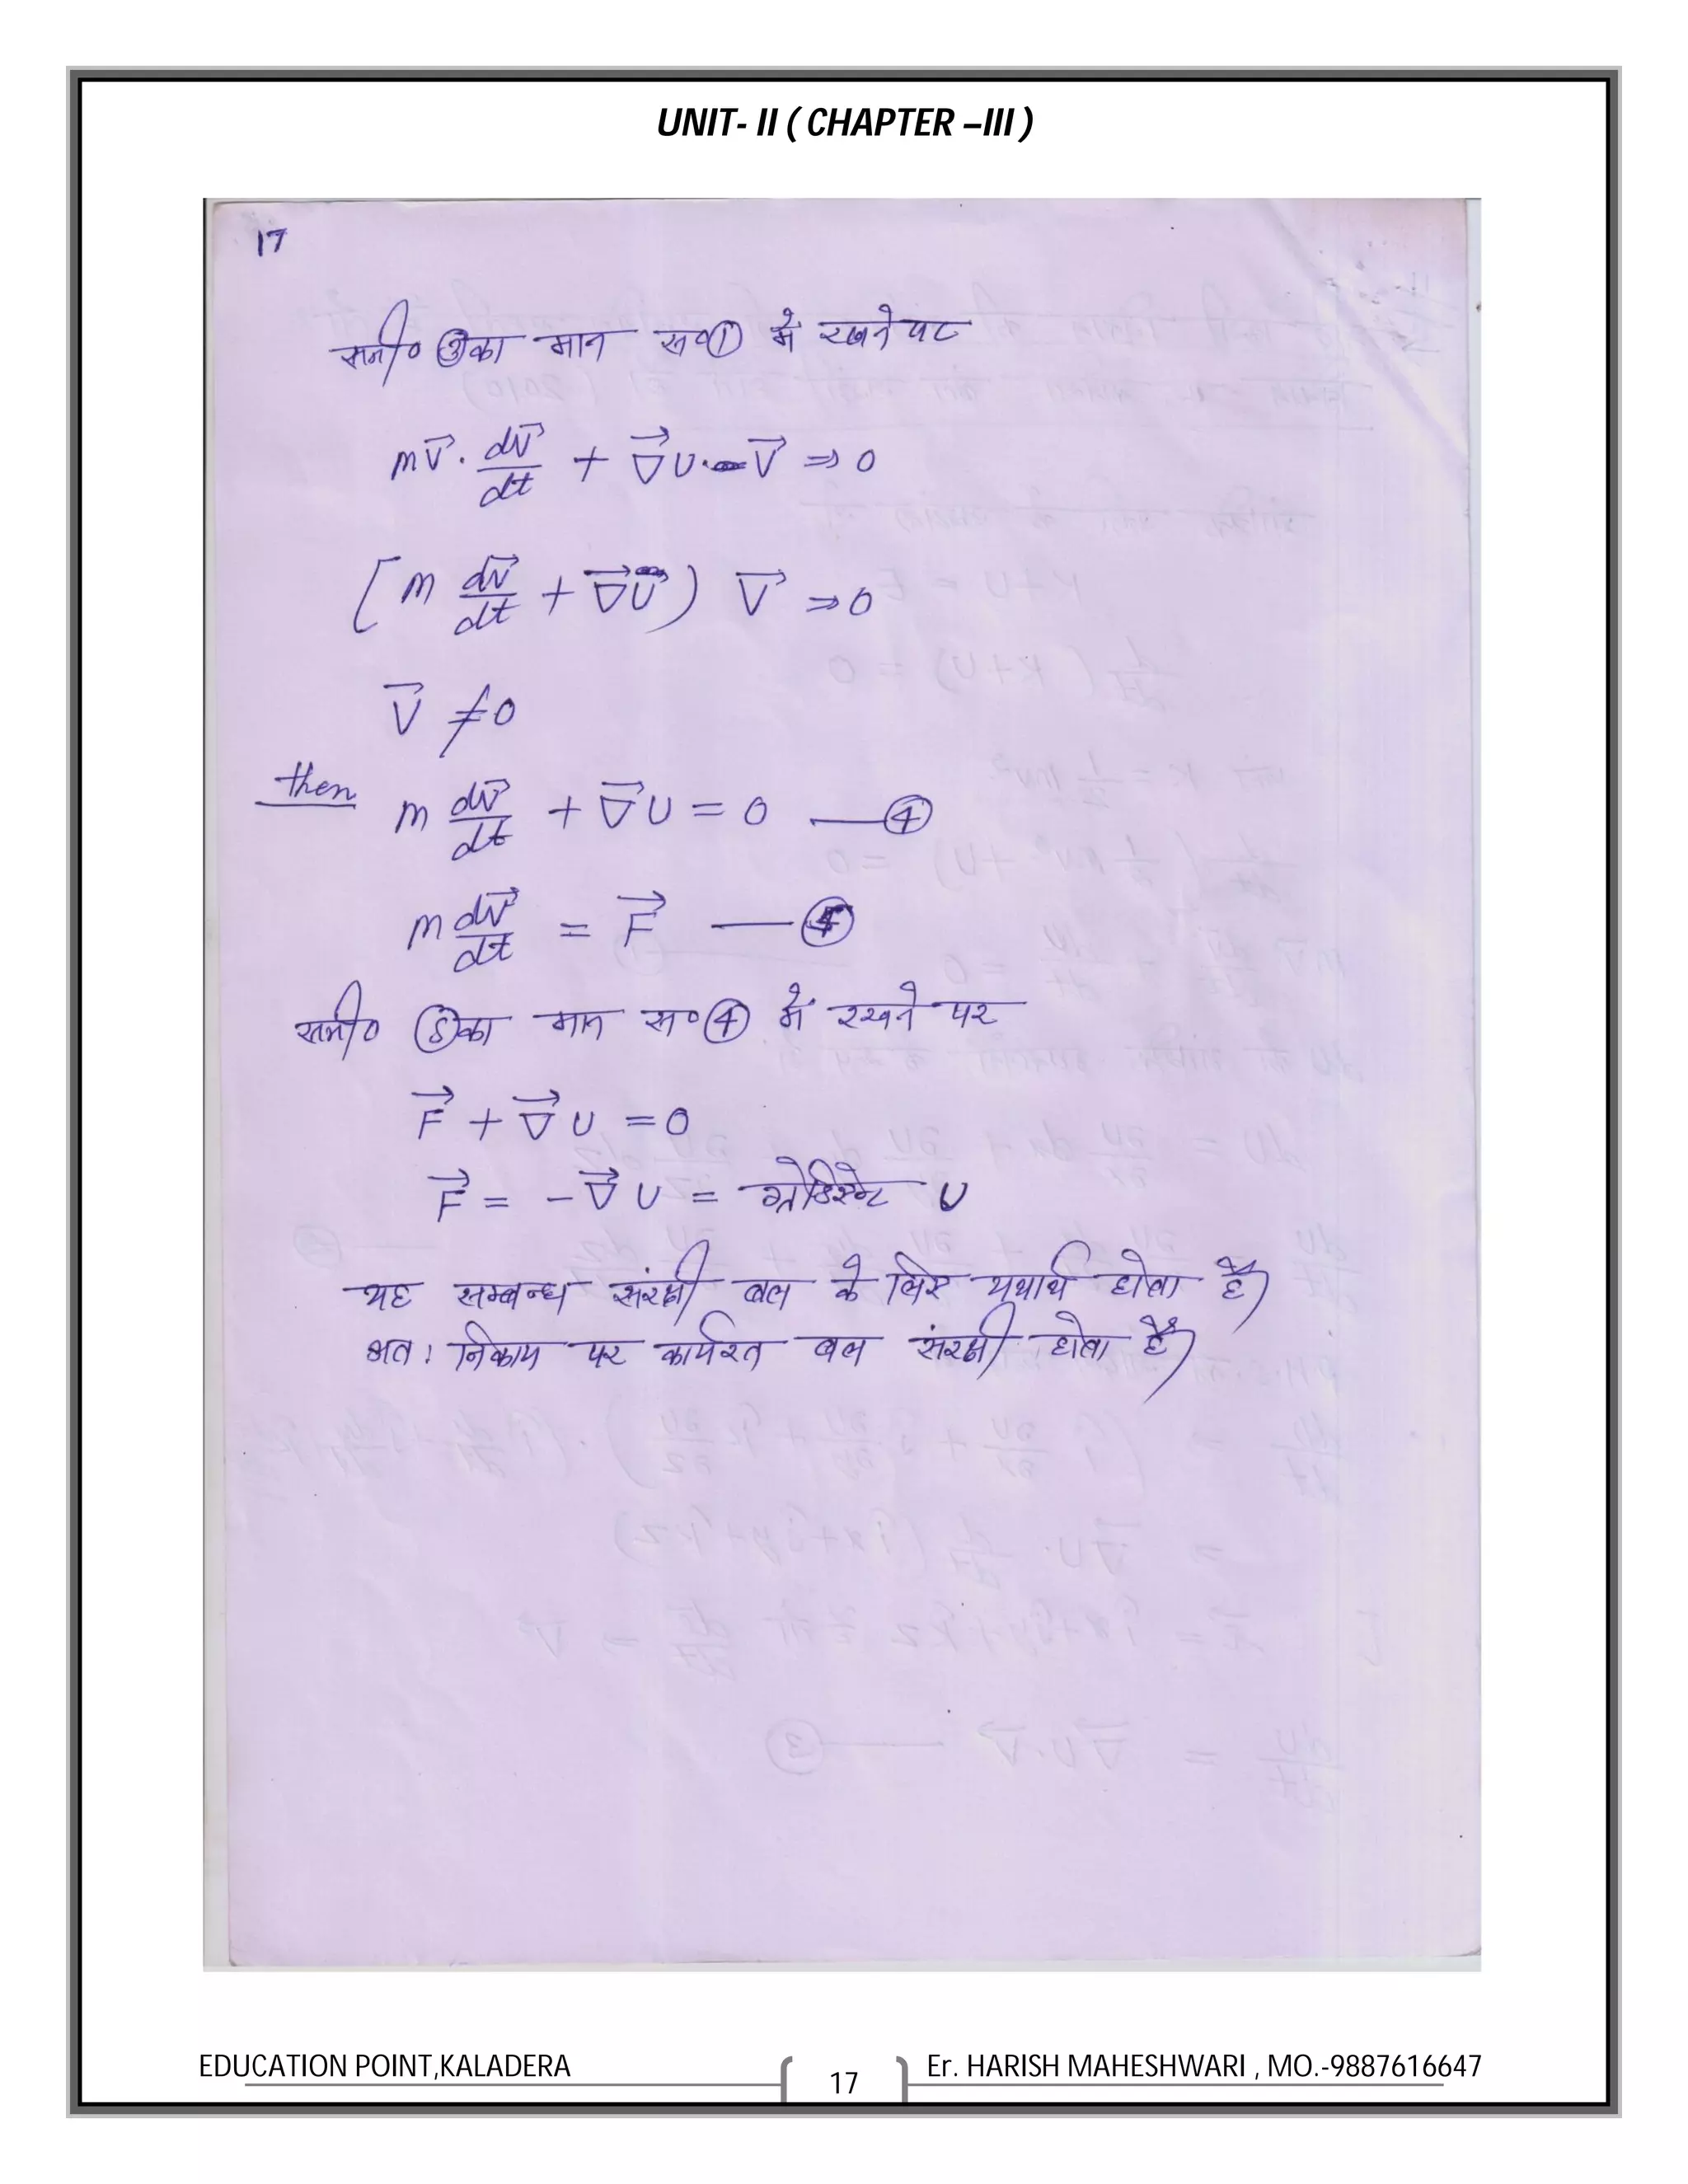 UNIT- II ( CHAPTER –III )
17
समी० ③का मान स०① में रखने पर
m\vec{V} · \frac{d\vec{V}}{dt} + \vec{∇}U · \vec{V} ⇒ 0
[ m \frac{d\vec{V}}{dt} + \vec{∇}U ) \vec{V} ⇒ 0
\vec{V} ≠ 0
then m \frac{d\vec{V}}{dt} + \vec{∇}U = 0 —④
m \frac{d\vec{V}}{dt} = \vec{F} —⑤
समी० ⑤का मान स०④ में रखने पर
\vec{F} + \vec{∇}U = 0
\vec{F} = - \vec{∇}U = ग्रेडिएन्ट U
यह सम्बन्ध संरक्षी बल के लिए यथार्थ होता है
अत: निकाय पर कार्यरत बल संरक्षी होता है
EDUCATION POINT,KALADERA
17
Er. HARISH MAHESHWARI , MO.-9887616647